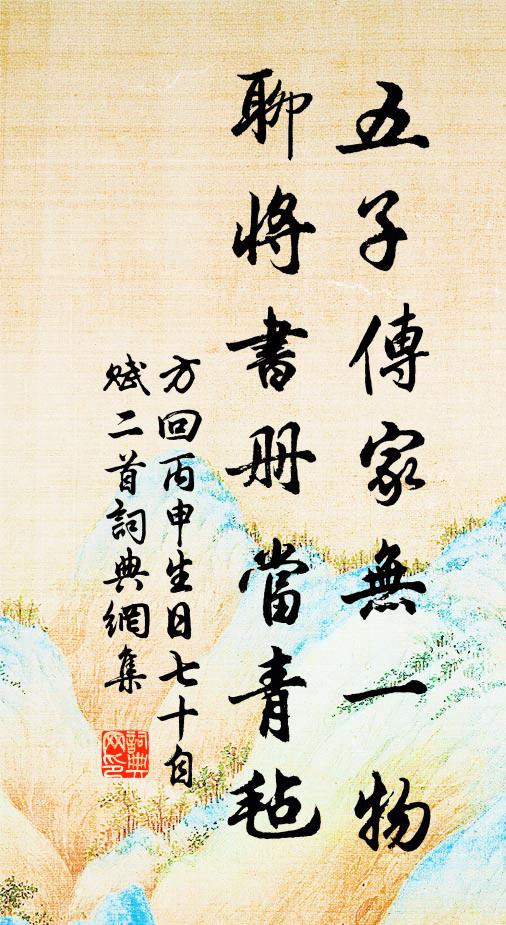 五子傳家無一物
聊將書册當青氈
方回丙申生日七十自
賦二首詞典網集
詞典
网印